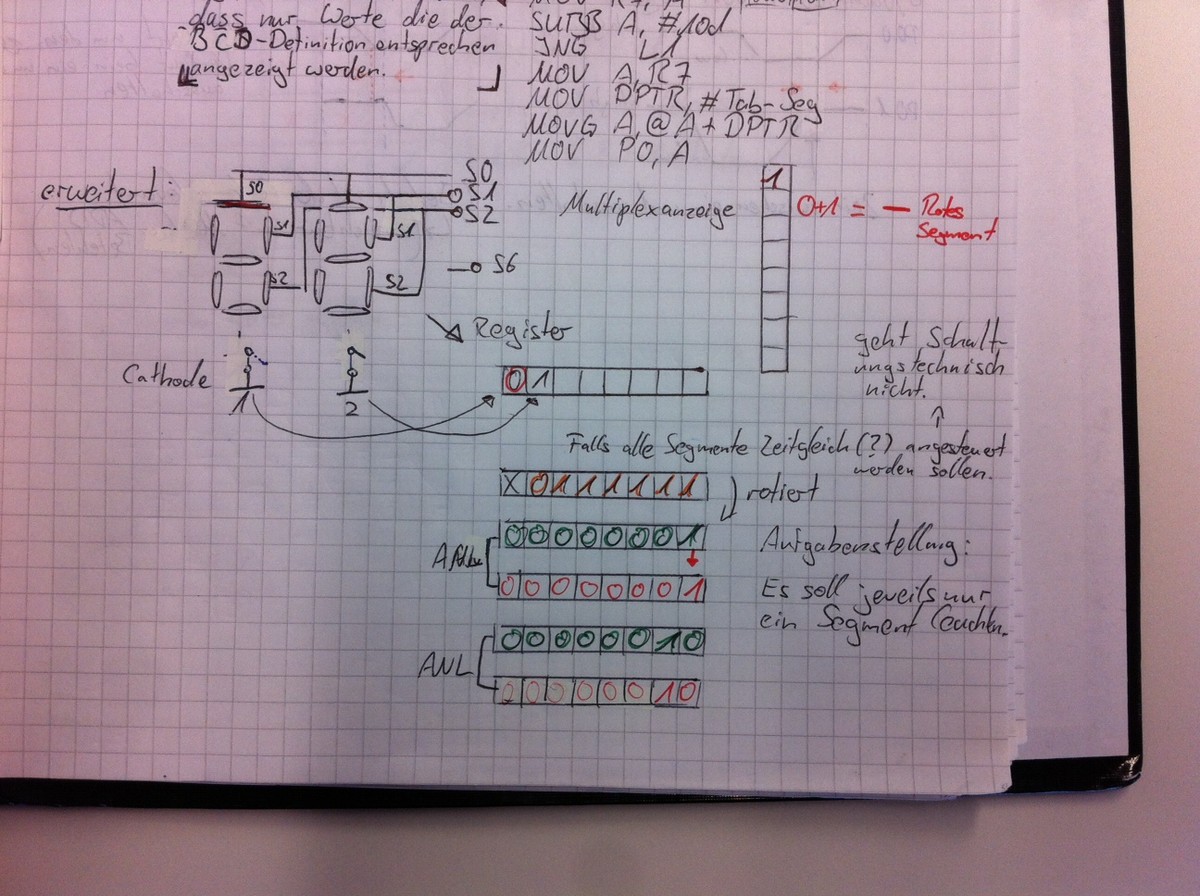 dass nur Werte die der
BCD-Definition entsprechen
angezeigt werden.
SUBB A, #10d
JNG L1
MOV A, R7
MOV DPTR, # Tab-Seg
MOVG A, @ A + DPTR
MOV P0, A
erweitert:
S0
S1
S2
S0
S1
S2
S1
S2
S6
Multiplexanzeige
1
0+1 = — Rotes
Segment
Register
Cathode
1
2
0 1
geht Schalt-
ungstechnisch
nicht.
Falls alle Segmente Zeitgleich (?) angesteuert
werden sollen.
X 0 1 1 1 1 1 1
rotiert
0 0 0 0 0 0 0 1
0 0 0 0 0 0 0 1
Aufgabenstellung:
Es soll jeweils nur
ein Segment leuchten.
0 0 0 0 0 0 1 0
ANL
0 0 0 0 0 0 1 0